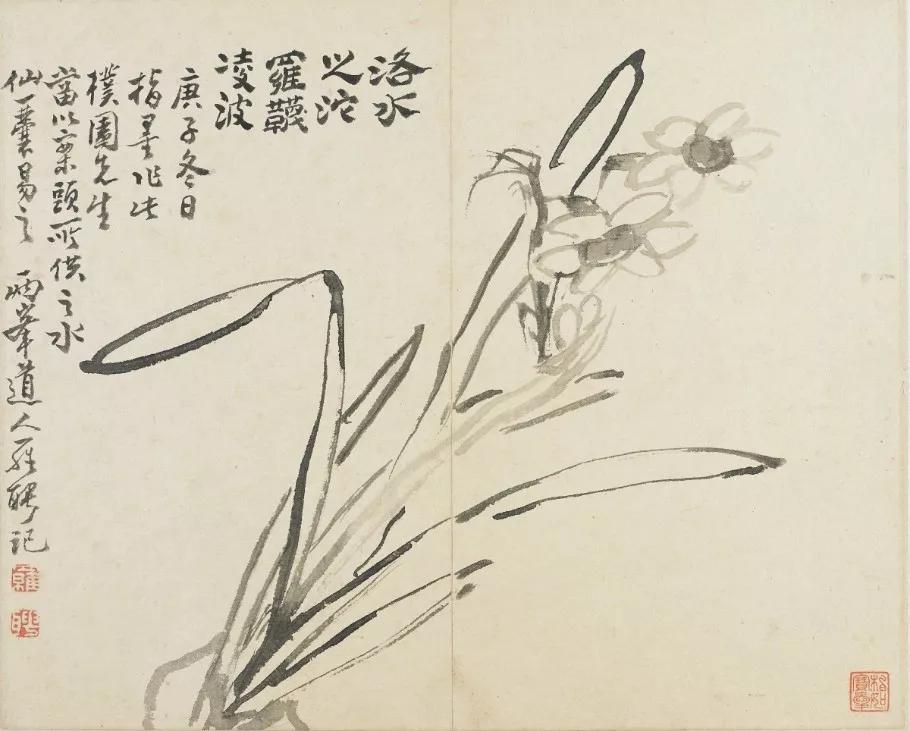 洛水
之沱
羅韈
凌波
庚子冬日
指墨作此
樸園先生
當以案頭所供之水
仙一易之 兩峯道人羅聘記
羅
聘